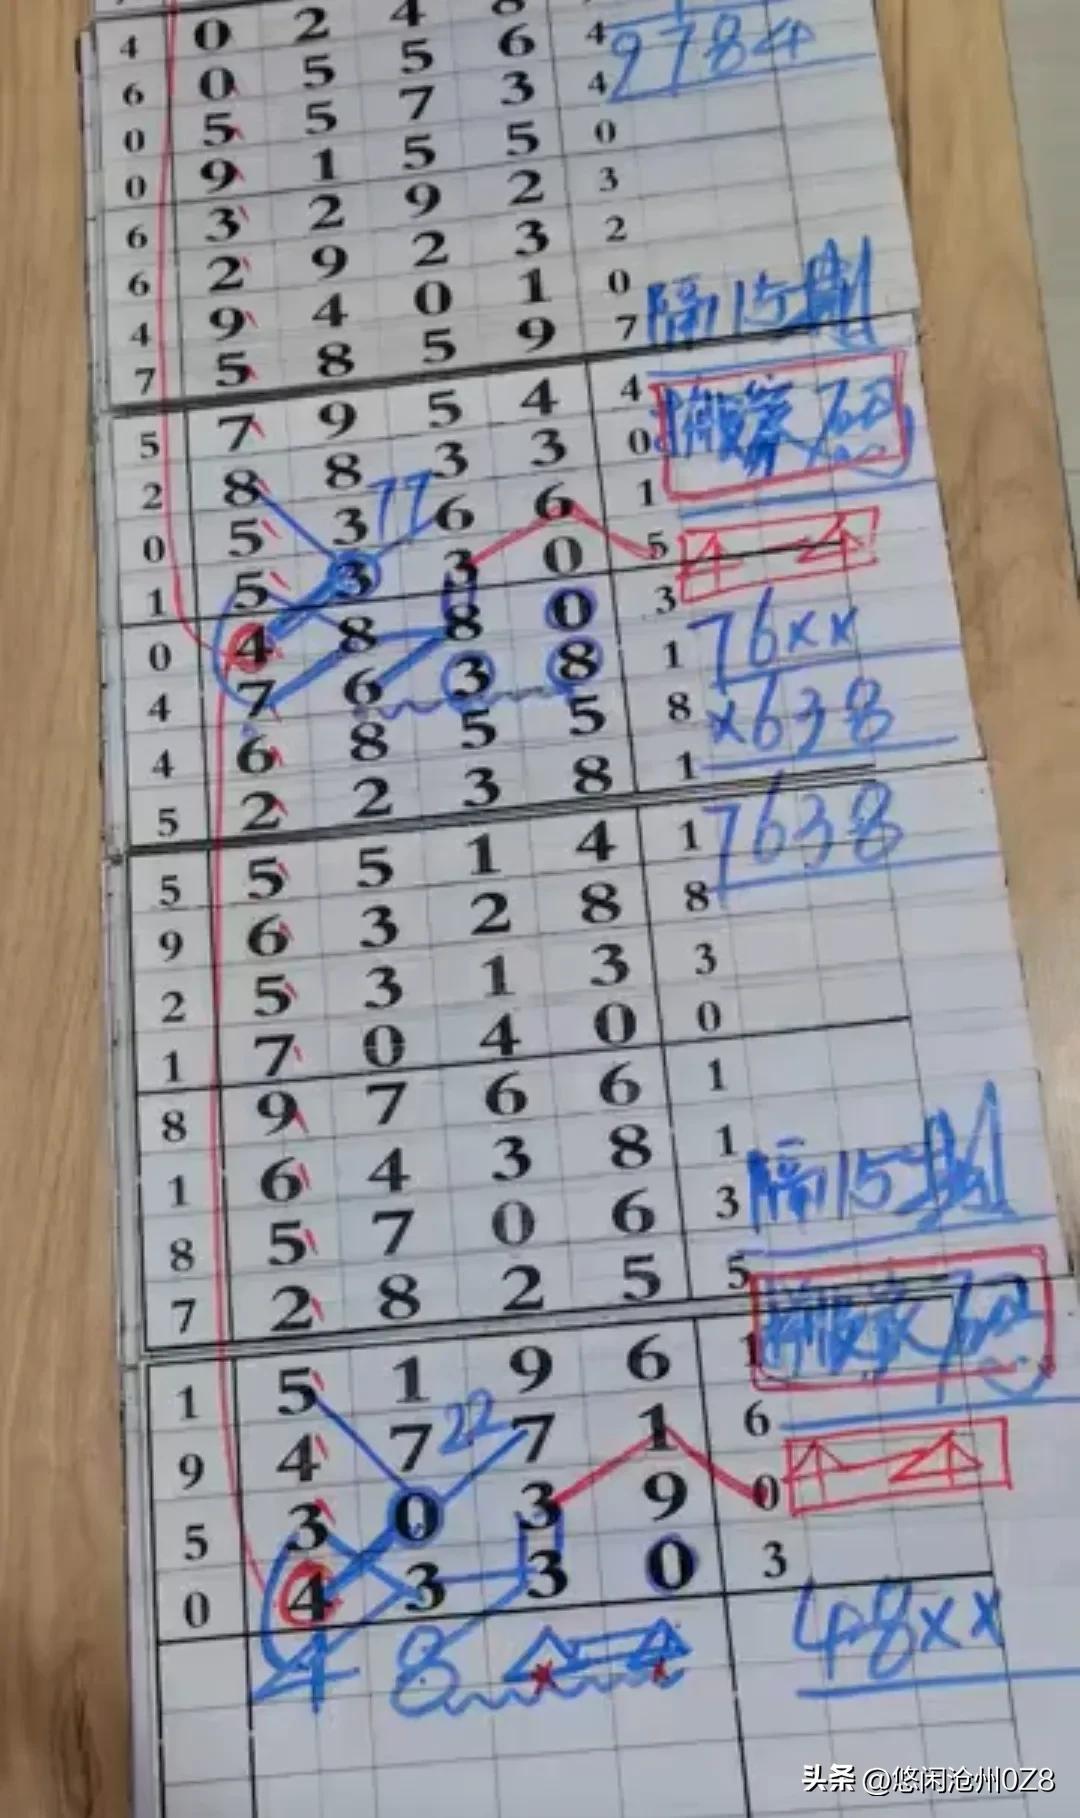 4 0 2 4 8
6 0 5 5 6 4 9784
0 5 5 7 3 4
0 9 1 5 5 0
6 3 2 9 2 3
6 2 9 2 3 2
4 9 4 0 1 0
7 5 8 5 9 7 隔15期
5 7 9 5 4 4
2 8 8 3 3 0
77
0 5 3 6 6 1
1 5 3 3 0 5
0 4 8 8 0 3 76××
4 7 6 3 8 1
4 6 8 5 5 8 ×638
5 2 2 3 8 1
5 5 5 1 4 1 7638
9 6 3 2 8 8
2 5 3 1 3 3
1 7 0 4 0 0
8 9 7 6 6 1
1 6 4 3 8 1
8 5 7 0 6 3 隔15期
7 2 8 2 5 5
1 5 1 9 6 1
22
9 4 7 7 1 6
5 3 0 3 9 0
0 4 3 3 0 3
4 8 48××
头条 @悠闲沧州0Z8